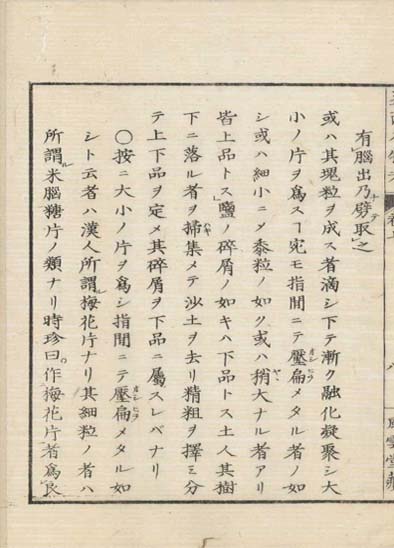 有腦出乃劈取之
或ハ其塊粒ヲ成ス者滴シ下テ漸ク融化凝聚シ大
小ノ片ヲ爲スヿ宛モ指間ニテ壓扁メタル者ノ如
シ或ハ細小ニメ黍粒ノ如ク或ハ稍大ナル者アリ
皆上品トス鹽ノ碎屑ノ如キハ下品トス土人其樹
下ニ落ル者ヲ掃集メテ沙土ヲ去リ精粗ヲ擇ミ分
テ上下品ヲ定メ其碎屑ヲ下品ニ屬スレベナリ
〇按ニ大小ノ片ヲ爲シ指間ニテ壓扁メタル如
シト云者ハ漢人所謂梅花片ナリ其細粒ノ者ハ
所謂米腦糖片ノ類ナリ時珍曰。作梅花片者爲良